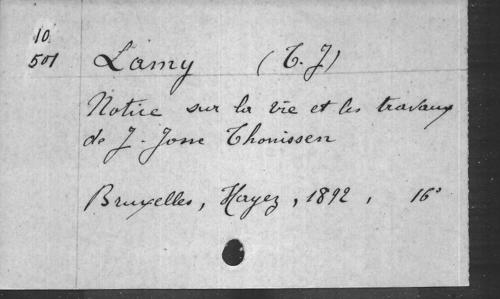 10
501
Lamy (T. J)
Notice sur la vie et les travaux
de J. Josse Thonissen
Bruxelles, Hayez, 1892, 16°